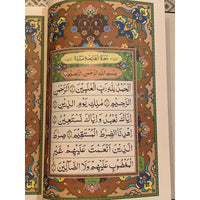 سُورَةُ الْفَاتِحَةِ
بِسْمِ اللّٰهِ الرَّحْمٰنِ الرَّحِيمِ
اَلْحَمْدُ لِلّٰهِ رَبِّ الْعٰلَمِينَ ۞ اَلرَّحْمٰنِ
الرَّحِيمِ ۞ مٰلِكِ يَوْمِ الدِّينِ ۞
اِيَّاكَ نَعْبُدُ وَاِيَّاكَ نَسْتَعِينُ ۞
اِهْدِنَا الصِّرَاطَ الْمُسْتَقِيمَ ۞ صِرَاطَ
الَّذِينَ اَنْعَمْتَ عَلَيْهِمْ غَيْرِ
الْمَغْضُوبِ عَلَيْهِمْ وَلَا الضَّٓالِّينَ